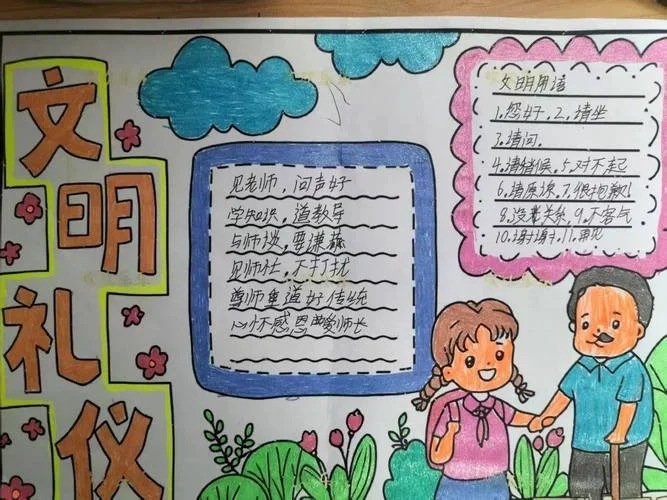 文明礼仪
见老师，问声好
学知识，道教导
与师谈，要谦恭
见师忙，不打扰
尊师重道好传统
心怀感恩爱师长
文明用语
1.您好.2.请坐
3.请问.
4.请稍候.5.对不起
6.请原谅.7.很抱歉!
8.没关系.9.不客气
10.谢谢.11.再见